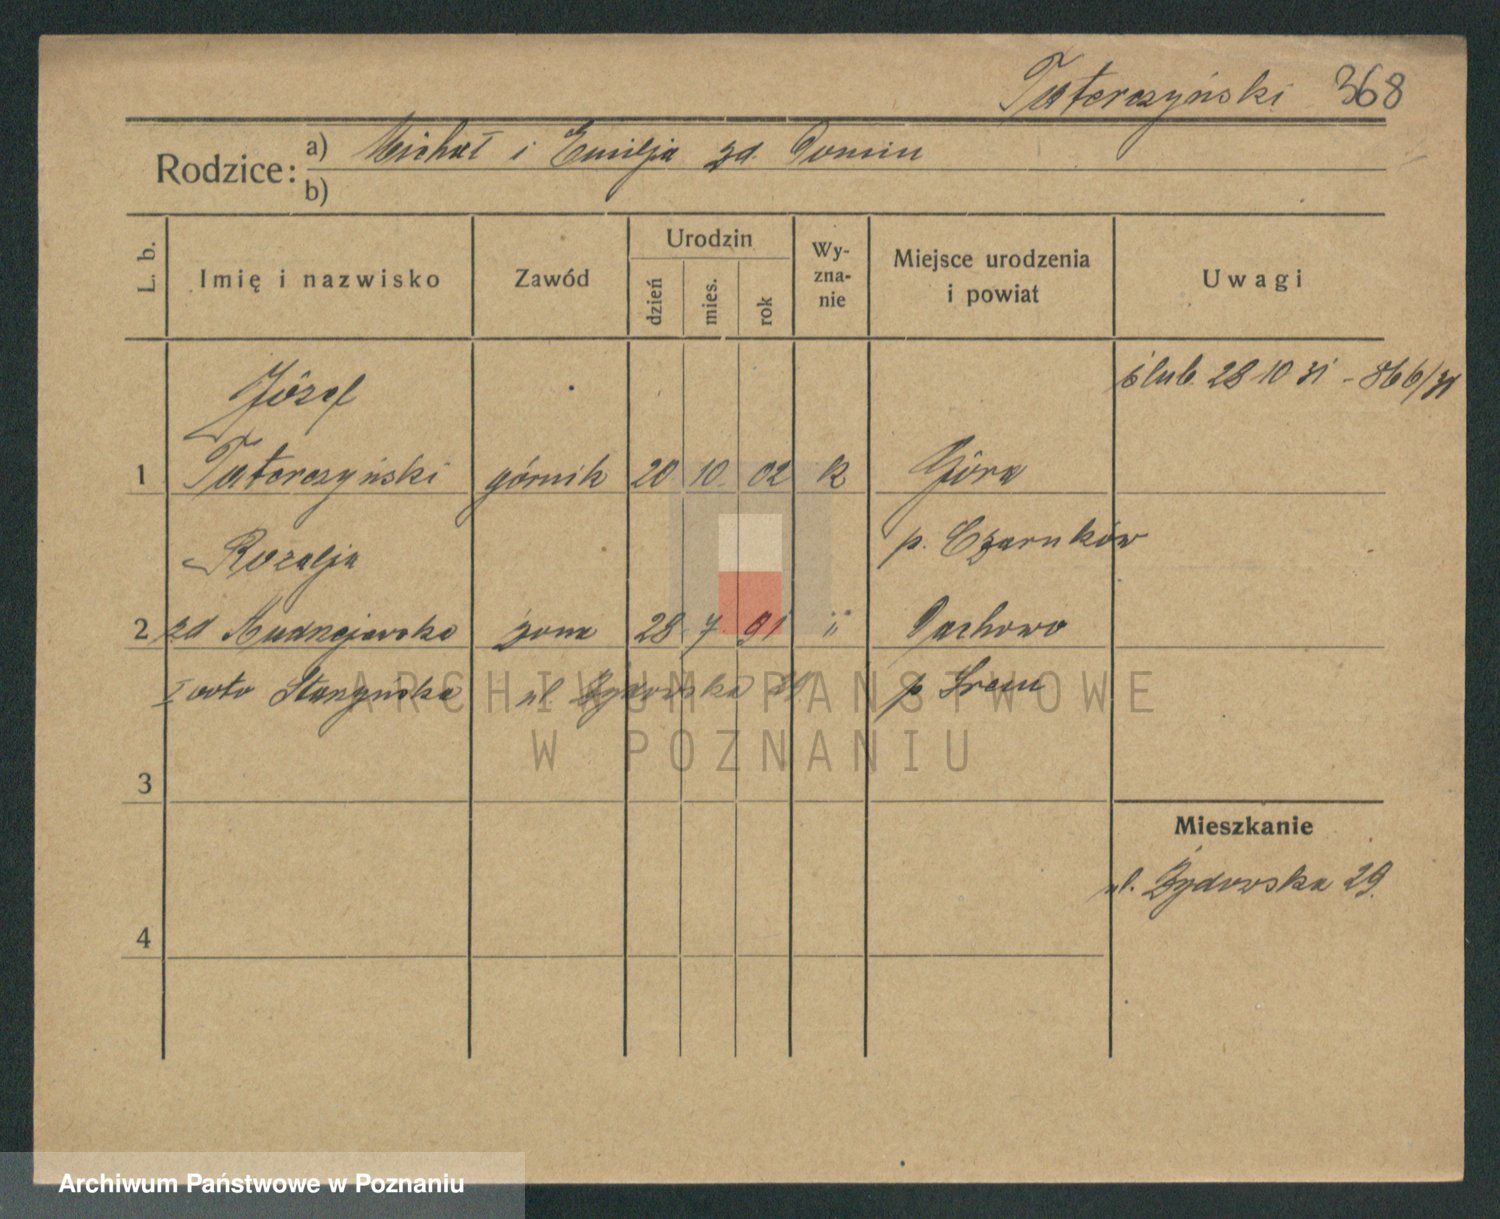 Tatarczyński 368
Rodzice: a) Michał i Emilja zd. Domin
b)
L. b.
Imię i nazwisko
Zawód
Urodzin
dzień
mies.
rok
Wy-
zna-
nie
Miejsce urodzenia
i powiat
Uwagi
Józef
ślub 28 10 31 - 866/31
1 Tatarczyński górnik 20 10 02 k Góra
Rozalja
p. Czarnków
2 zd żona 28 7 91 " Dachowo
I voto Starzyńska ul Żydowska 29 p Śrem
ARCHIWUM PAŃSTWOWE
W POZNANIU
3
Mieszkanie
ul. Żydowska 29.
4
Archiwum Państwowe w Poznaniu